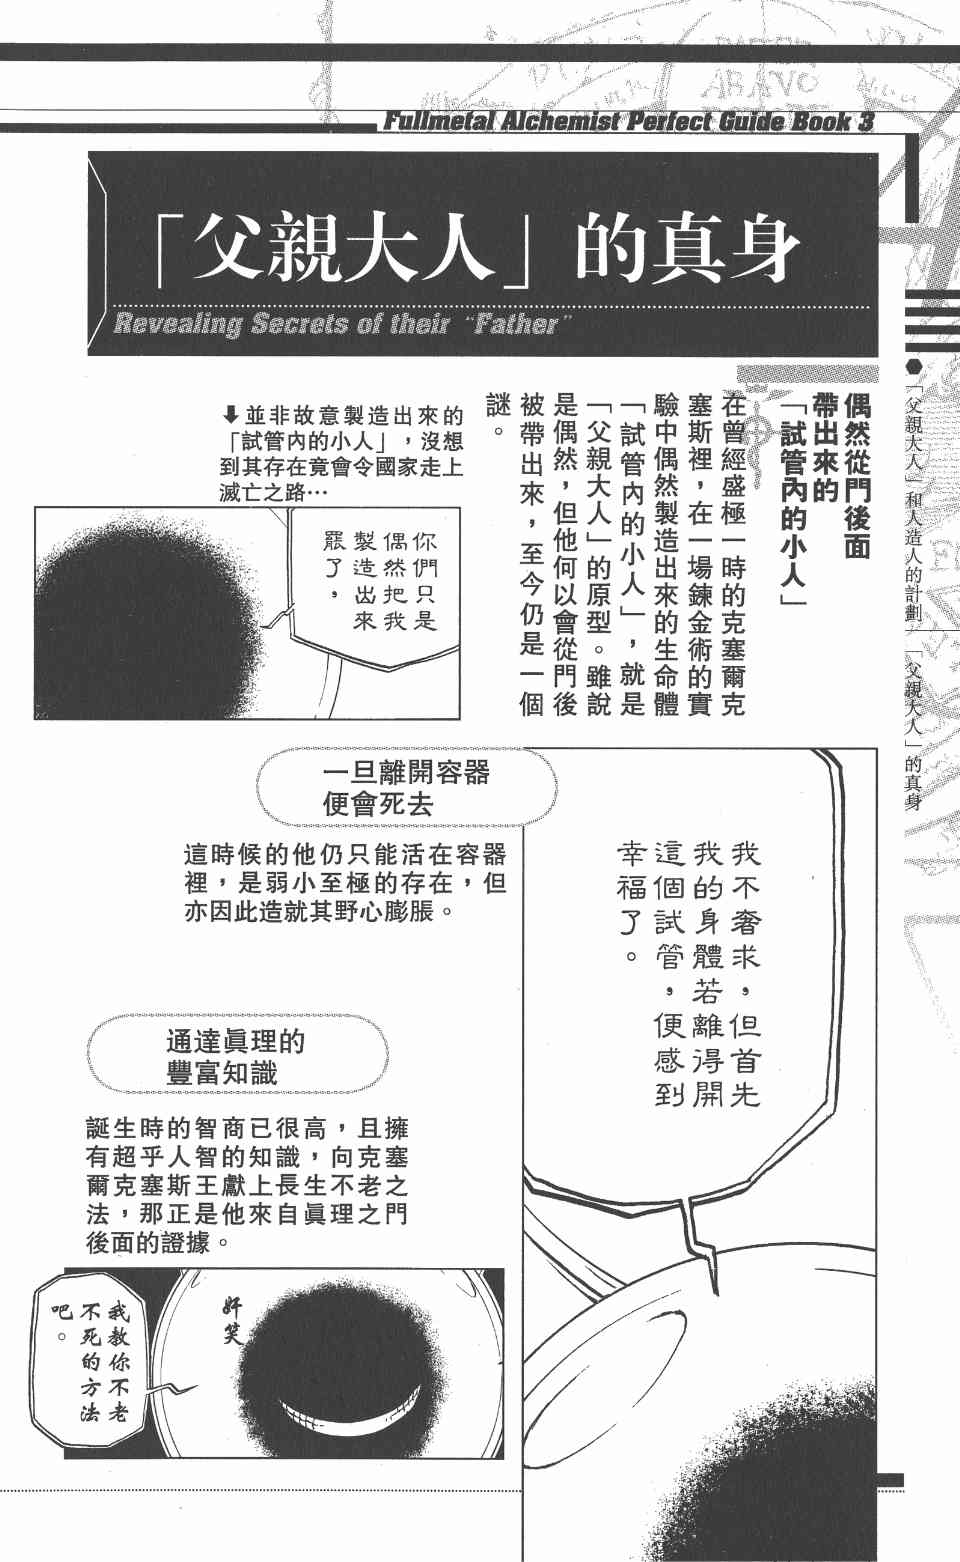 Fullmetal Alchemist Perfect Guide Book 3
「父親大人」的真身
Revealing Secrets of their “Father”
●「父親大人」和人造人的計劃
「父親大人」的真身
偶然從門後面
帶出來的
「試管內的小人」
在曾經盛極一時的克塞爾克
塞斯裡，在一場鍊金術的實
驗中偶然製造出來的生命體
「試管內的小人」，就是
「父親大人」的原型。雖說
是偶然，但他何以會從門後
被帶出來，至今仍是一個
謎。
⬇並非故意製造出來的
「試管內的小人」，沒想
到其存在竟會令國家走上
滅亡之路…
你們只是
偶然把我
製造出來
罷了，
一旦離開容器
便會死去
這時候的他仍只能活在容器
裡，是弱小至極的存在，但
亦因此造就其野心膨脹。
我不奢求，但首先
我的身體若離得開
這個試管，便感到
幸福了。
通達眞理的
豐富知識
誕生時的智商已很高，且擁
有超乎人智的知識，向克塞
爾克塞斯王獻上長生不老之
法，那正是他來自眞理之門
後面的證據。
奸笑
我教你不老
不死的方法
吧。